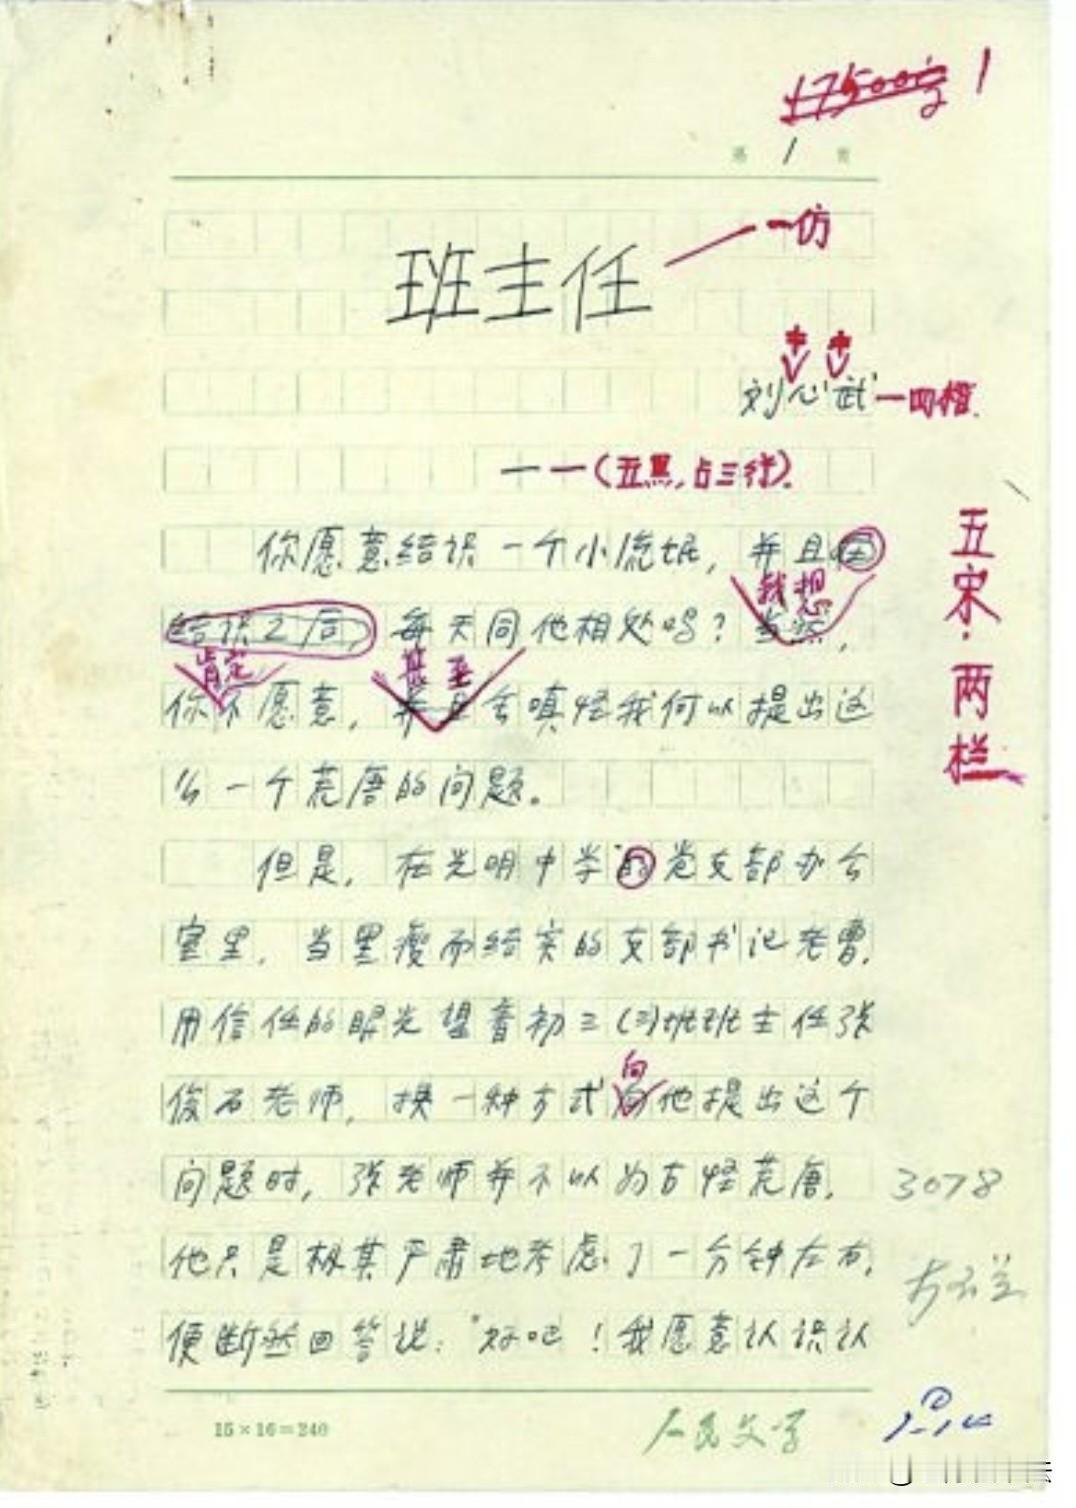 17500字 1
第 1 页
班主任
一仿
刘心武
一四楷.
一 一(五黑,占三行).
五宋·两栏
你愿意结识一个小流氓,并且在
结识之后,每天同他相处吗?当然,
我想
肯定
甚至
你不愿意,并且会嗔怪我何以提出这
么一个荒唐的问题。
但是,在光明中学的党支部办公
室里,当黑瘦而结实的支部书记老曹,
用信任的眼光望着初三(三)班班主任张
俊石老师,换一种方式向他提出这个
向
问题时,张老师并不以为古怪荒唐,
3078
他只是极其严肃地考虑了一分钟左右,
便断然回答说:“好吧!我愿意认识认
15×16=240
人民文学